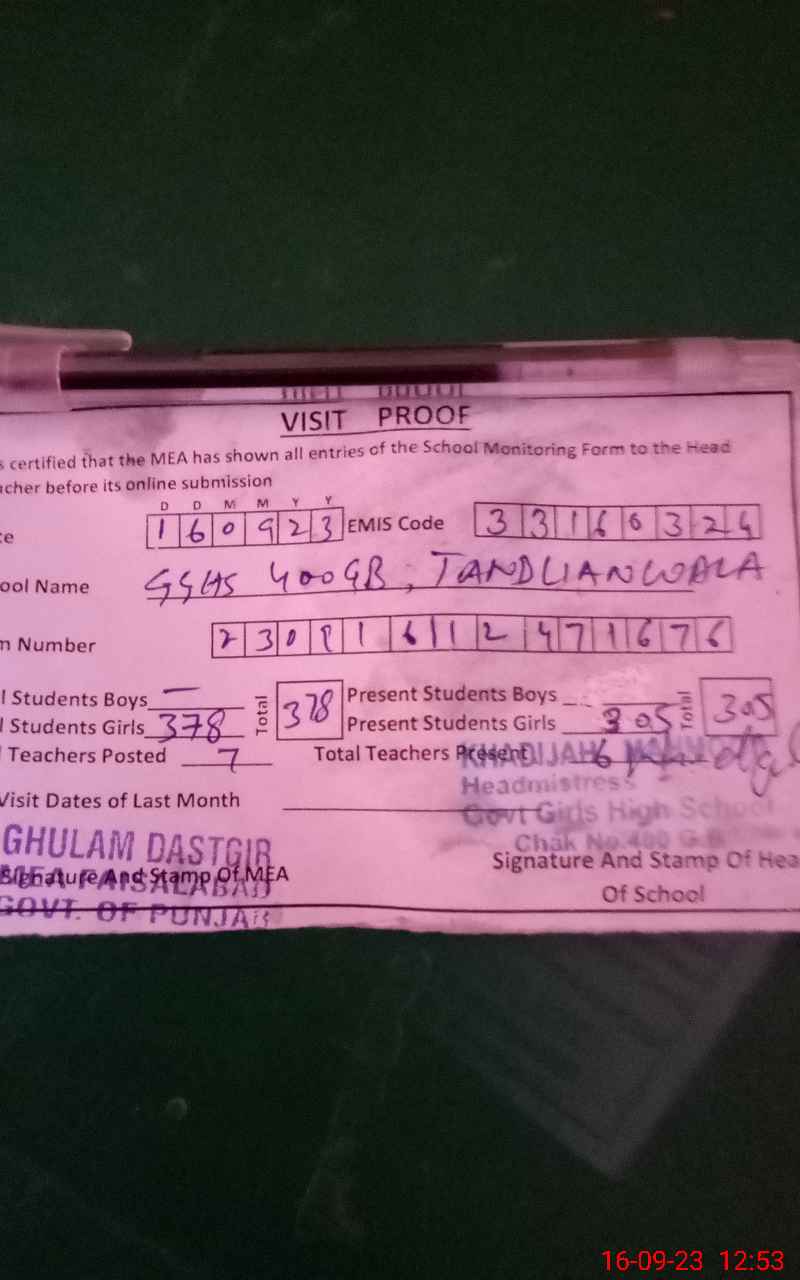 VISIT PROOF
s certified that the MEA has shown all entries of the School Monitoring Form to the Head
cher before its online submission
D D M M Y Y
te 1 6 0 9 2 3 EMIS Code 3 3 1 6 0 3 2 4
ool Name GGHS 400GB, TANDLIANWALA
m Number 2 3 0 9 1 6 1 2 4 7 1 6 7 6
l Students Boys — Total 378 Present Students Boys Total 305
l Students Girls 378 Present Students Girls 305
Teachers Posted 7 Total Teachers Present 6
KHADIJAH
Headmistress
Visit Dates of Last Month
Govt Girls High School
Chak No.400 G.B
GHULAM DASTGIR
MEA FAISALABAD
Signature And Stamp Of MEA
GOVT. OF PUNJAB
Signature And Stamp Of Hea
Of School
16-09-23 12:53